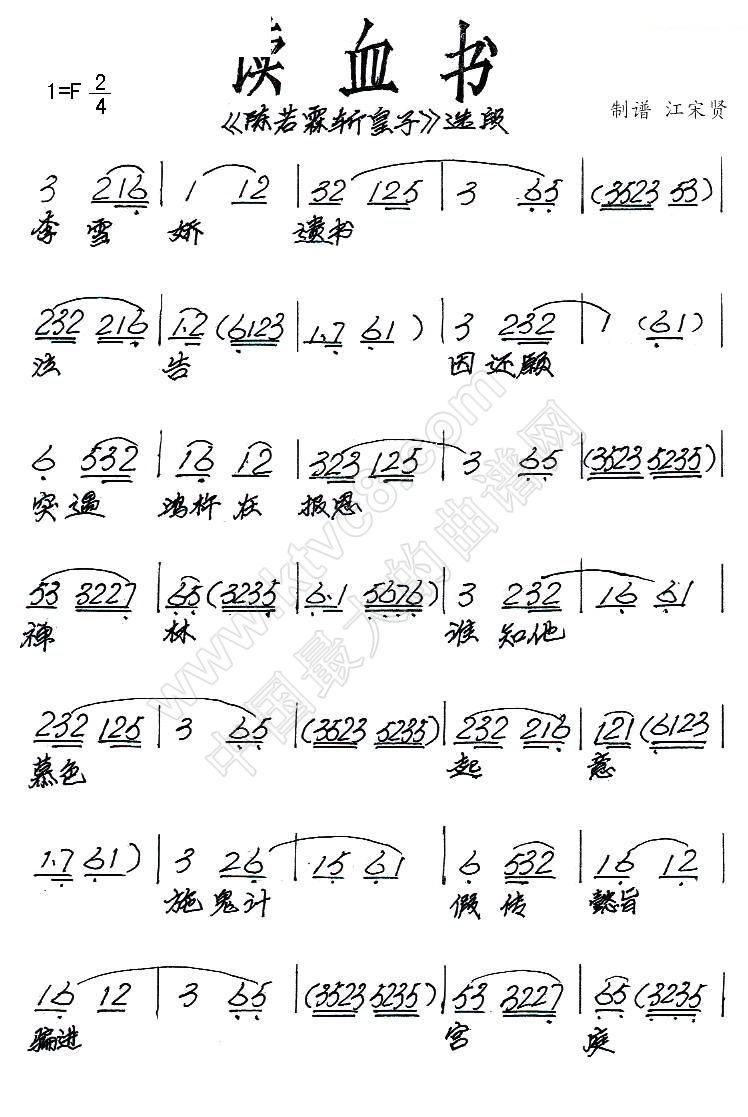 读血书
1=F 2/4
《陈若霖斩皇子》选段
制谱 江宋贤
3 216 | 1 12 | 32 125 | 3 65 | (3523 53)
李雪 娇 遗书
232 216 | 1·2 (6123 | 1·7 61) | 3 232 | 1 (61)
泣 告 因还愿
6 532 | 16 12 | 323 125 | 3 65 | (3523 5235)
突遇 鸿杵在 报恩
53 3227 | 65 (3235 | 6·1 5676) | 3 232 | 16 61
禅 林 谁 知他
232 125 | 3 65 | (3523 5235) | 232 216 | 121 (6123
慕色 起 意
1·7 61) | 3 26 | 15 61 | 6 532 | 16 12
施鬼计 假传 懿旨
16 12 | 3 65 | (3523 5235) | 53 3227 | 65 (3235
骗进 宫 庭
www.ktvc8.com
中国最大的曲谱网